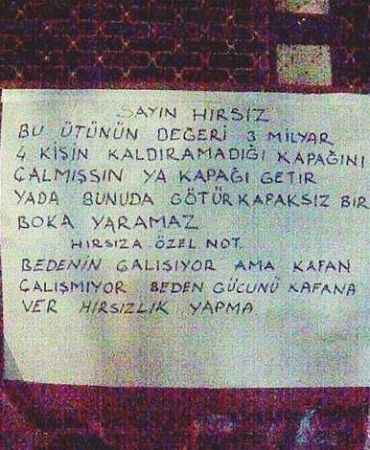 SAYIN HIRSIZ
BU ÜTÜNÜN DEĞERİ 3 MİLYAR
4 KİŞİN KALDIRAMADIĞI KAPAĞINI
ÇALMIŞSIN YA KAPAĞI GETİR
YADA BUNUDA GÖTÜR KAPAKSIZ BİR
BOKA YARAMAZ
HIRSIZA ÖZEL NOT.
BEDENİN ÇALIŞIYOR AMA KAFAN
ÇALIŞMIYOR BEDEN GÜCÜNÜ KAFANA
VER HIRSIZLIK YAPMA